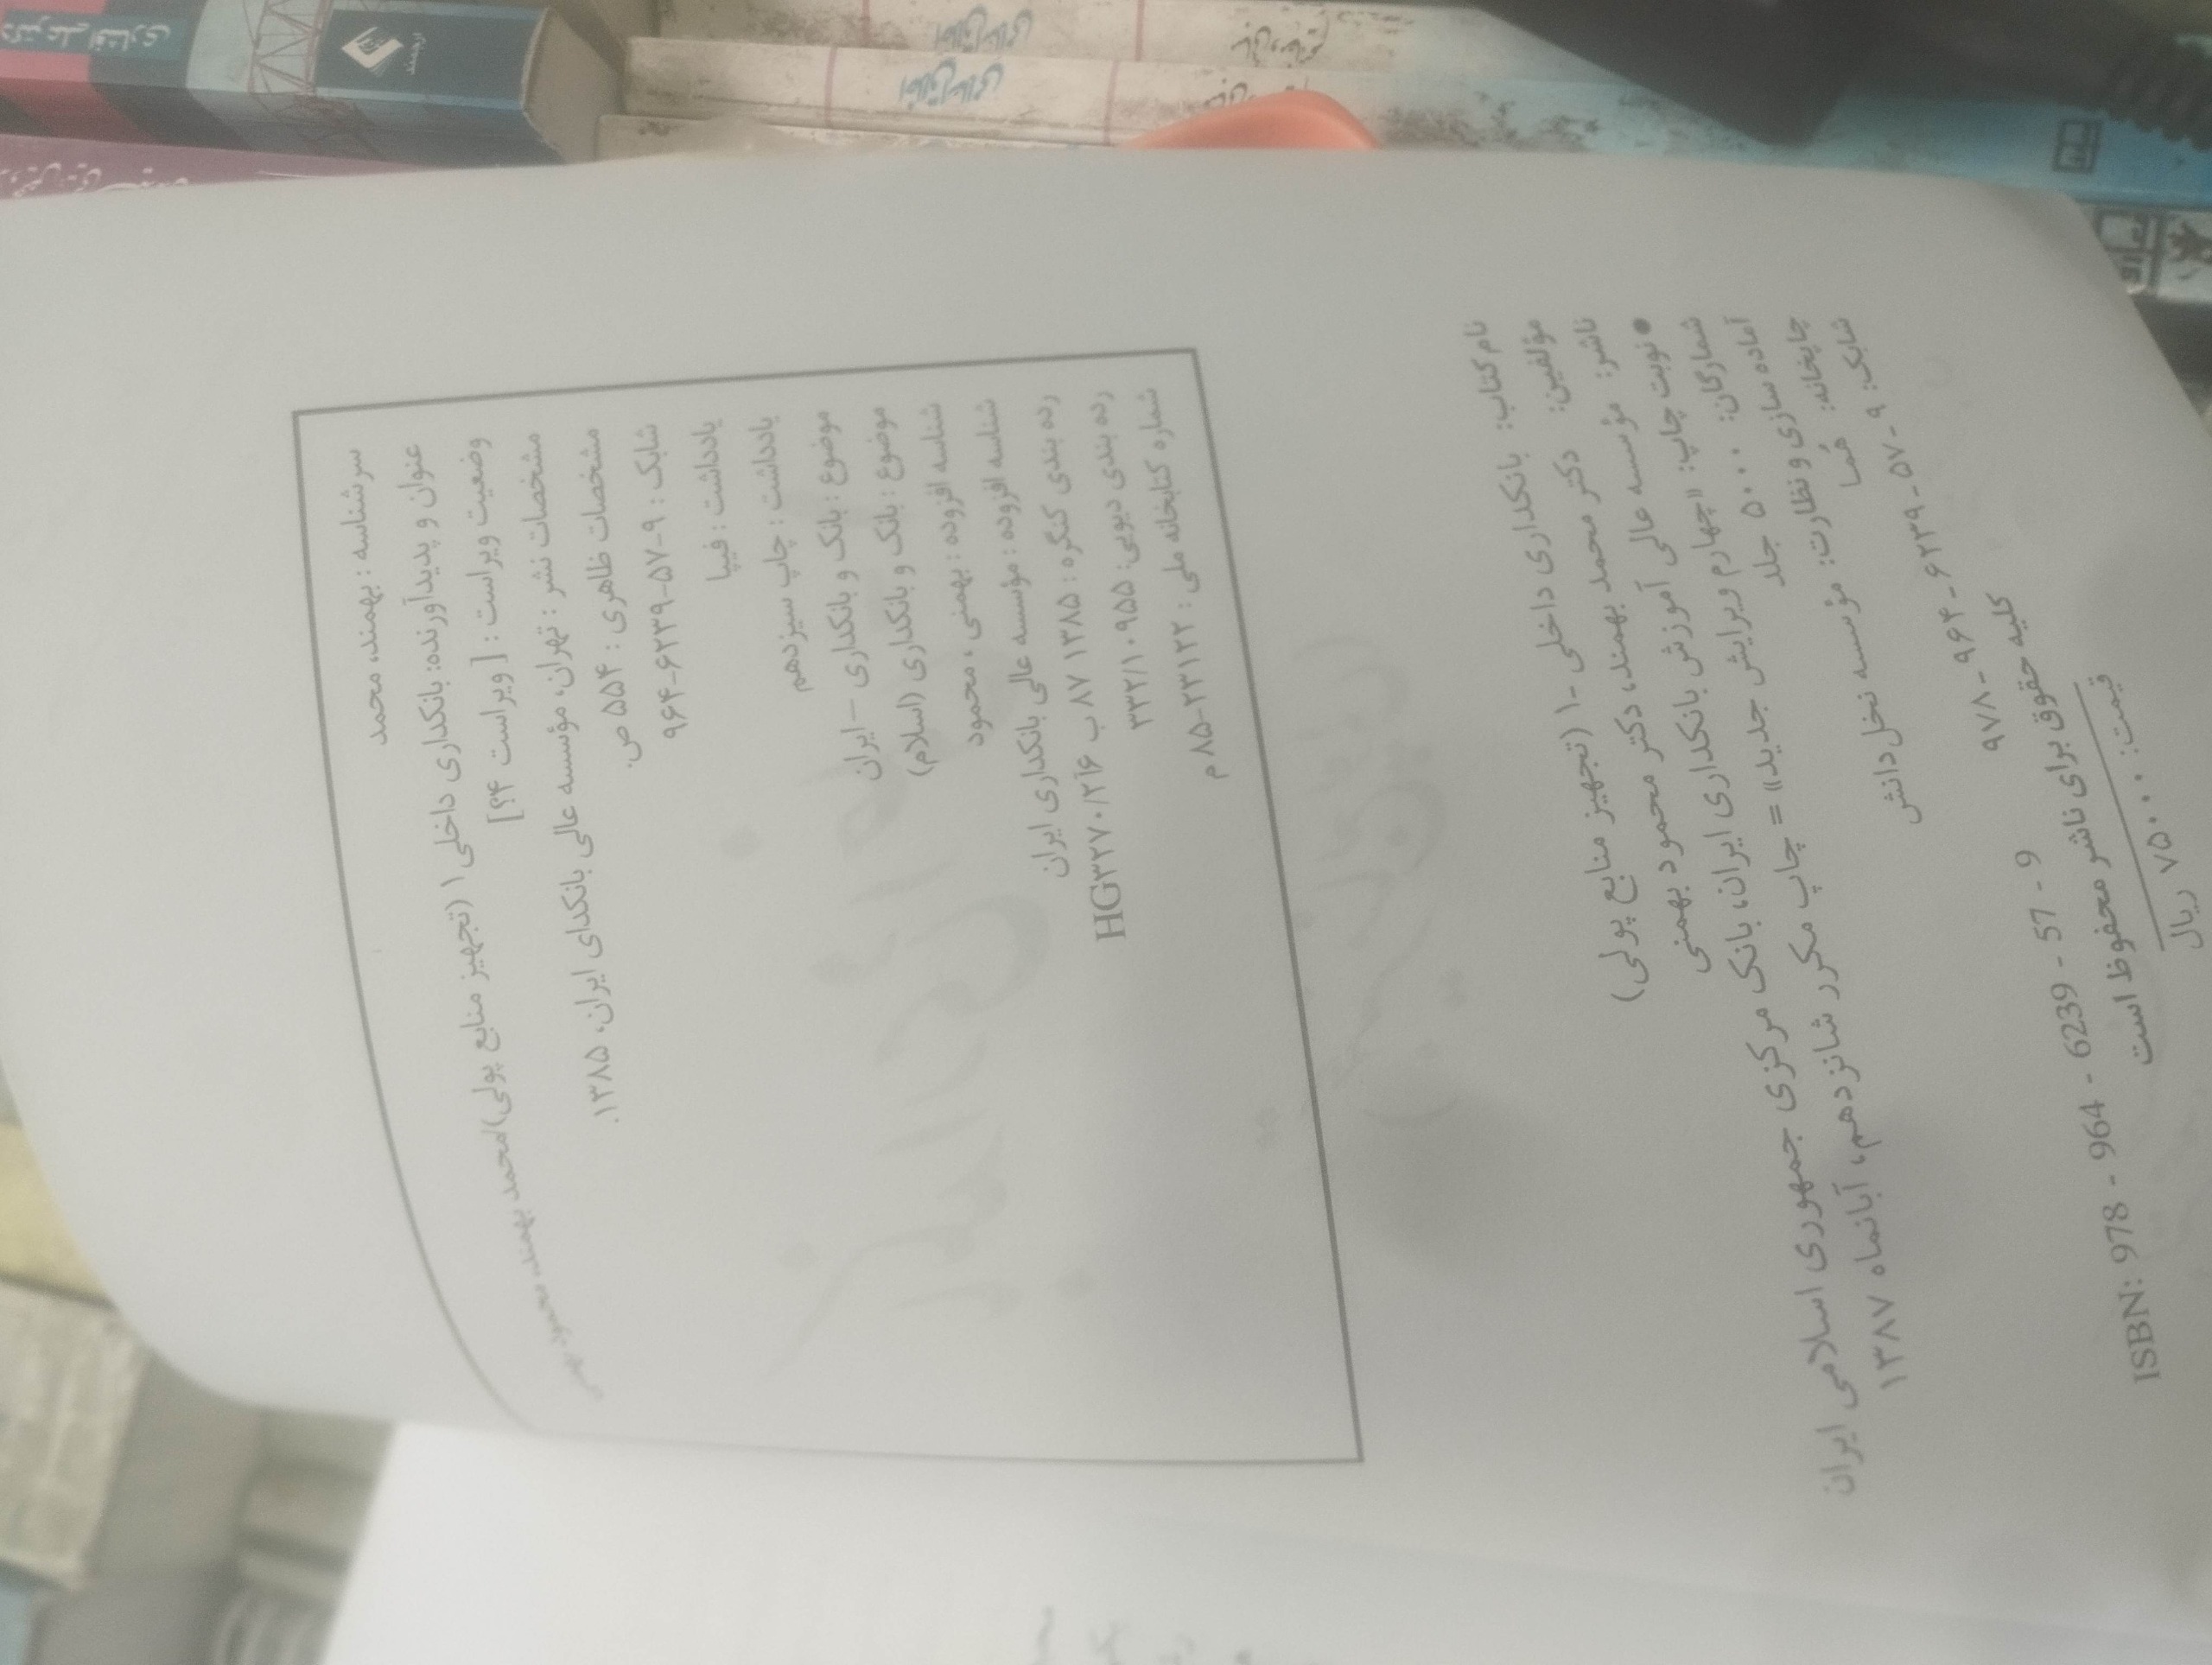 سرشناسه : بهمند، محمد
عنوان و پدیدآورنده: بانکداری داخلی ۱ (تجهیز منابع پولی)/محمد بهمند، محمود بهمنی
وضعیت ویراست : [ویراست ۴؟]
مشخصات نشر : تهران، مؤسسه عالی بانکدای ایران، ۱۳۸۵.
مشخصات ظاهری : ۵۵۴ ص.
شابک : ۹-۵۷-۶۲۳۹-۹۶۴
یادداشت : فیپا
یادداشت : چاپ سیزدهم
موضوع : بانک و بانکداری – ایران
موضوع : بانک و بانکداری (اسلام)
شناسه افزوده : بهمنی ، محمود
شناسه افزوده : مؤسسه عالی بانکداری ایران
رده بندی کنگره : ۱۳۸۵ ۸۷ ب ۲آ۶/HG۳۲۷۰
رده بندی دیویی: ۳۳۲/۱۰۹۵۵
شماره کتابخانه ملی : ۲۳۱۲۲-۸۵ م
نام کتاب: بانکداری داخلی -۱ (تجهیز منابع پولی)
مؤلفین: دکتر محمد بهمند، دکتر محمود بهمنی
ناشر: مؤسسه عالی آموزش بانکداری ایران، بانک مرکزی جمهوری اسلامی ایران
● نوبت چاپ: «چهارم ویرایش جدید» = چاپ مکرر شانزدهم، آبانماه ۱۳۸۷
شمارگان: ۵۰۰۰ جلد
آماده سازی و نظارت: مؤسسه نخل دانش
چاپخانه: هُما
شابک: ۹ - ۵۷ - ۶۲۳۹ - ۹۶۴ - ۹۷۸
ISBN: 978 - 964 - 6239 - 57 - 9
کلیه حقوق برای ناشر محفوظ است
قیمت: ۷۵۰۰۰ ریال
دکتر علی افشاری